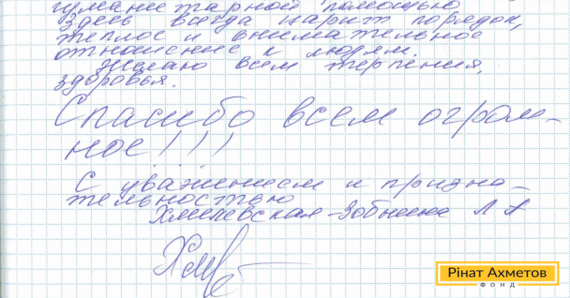 гуманитарной помощью
Здесь всегда царит порядок,
теплое и внимательное
отношение к людям.
Желаю всем терпения,
здоровья.
Спасибо всем огром-
ное!!!
С уважением и призна-
тельностью
Хмилевская-Зобнина Л А
Рінат Ахметов
ФОНД